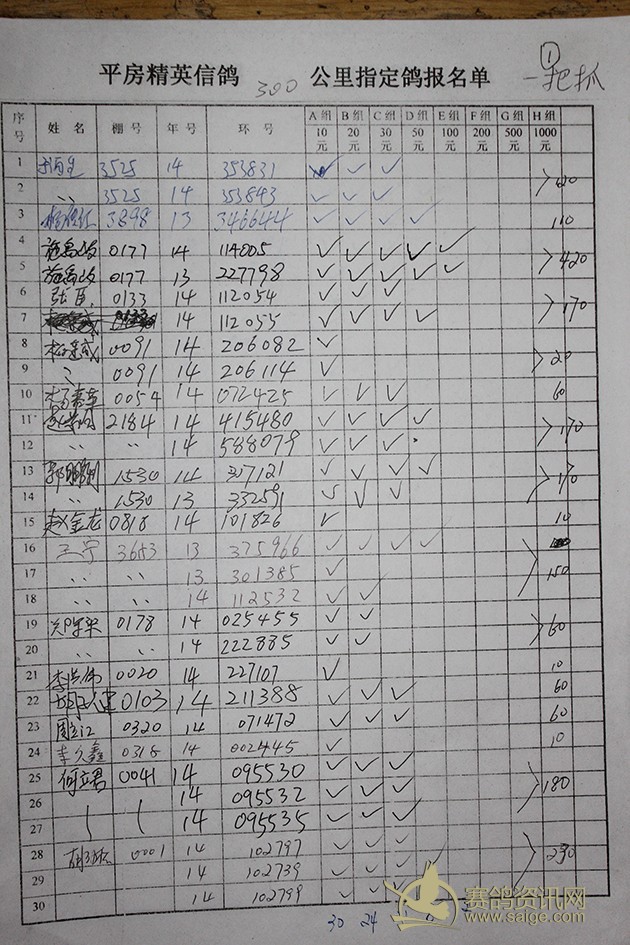 ①
平房精英信鸽 300 公里指定鸽报名单 一把抓
序号 姓 名 棚 号 年 号 环 号 A组 10元 B组 20元 C组 30元 D组 50元 E组 100元 F组 200元 G组 500元 H组 1000元
1 3525 14 353831 ✓ ✓ ✓
2 〃 3525 14 353843 ✓ ✓ ✓
3 3898 13 346644 ✓ ✓ ✓ ✓ 110
4 0177 14 114005 ✓ ✓ ✓ ✓ ✓
5 0177 13 227798 ✓ ✓ ✓ ✓ ✓ 420
6 张臣 0133 14 112054 ✓ ✓ ✓
7 14 112055 ✓ ✓ ✓ ✓ 170
8 0091 14 206082 ✓
9 〃 0091 14 206114 ✓ 20
10 0054 14 072425 ✓ ✓ ✓ 60
11 2184 14 415480 ✓ ✓ ✓ ✓ 170
12 〃 〃 14 588079 ✓ ✓ ✓
13 1530 14 307121 ✓ ✓ ✓ ✓ 170
14 〃 1530 13 332591 ✓ ✓ ✓
15 赵金龙 0818 14 101826 ✓ 10
16 王宇 3653 13 375966 ✓ ✓ ✓ ✓
17 〃 〃 13 301385 ✓ 150
18 〃 〃 14 112532 ✓ ✓
19 0178 14 025455 ✓ ✓ 60
20 〃 〃 14 222885 ✓ ✓
21 0020 14 227107 ✓ 10
22 0103 14 211388 ✓ ✓ ✓ 60
23 周立江 0320 14 071472 ✓ ✓ ✓ 60
24 李久鑫 0318 14 002445 ✓ 10
25 何立君 0041 14 095530 ✓ ✓ ✓
26 14 095532 ✓ ✓ ✓ 180
27 14 095535 ✓ ✓ ✓
28 0001 14 102797 ✓ ✓ ✓
29 14 102739 ✓ ✓ ✓ 290
30 14 102799 ✓ ✓
30 24
赛鸽资讯网
www.saige.com